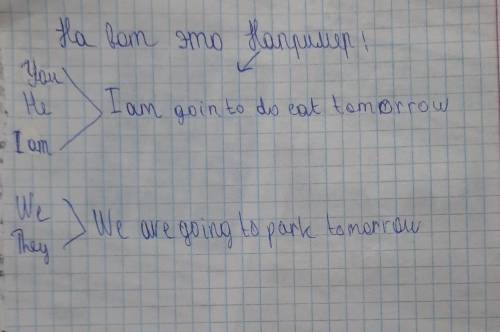 На вот это Например!
You
He
I am
I am goin to do eat tomorrow
We
They
We are going to park tomorrow